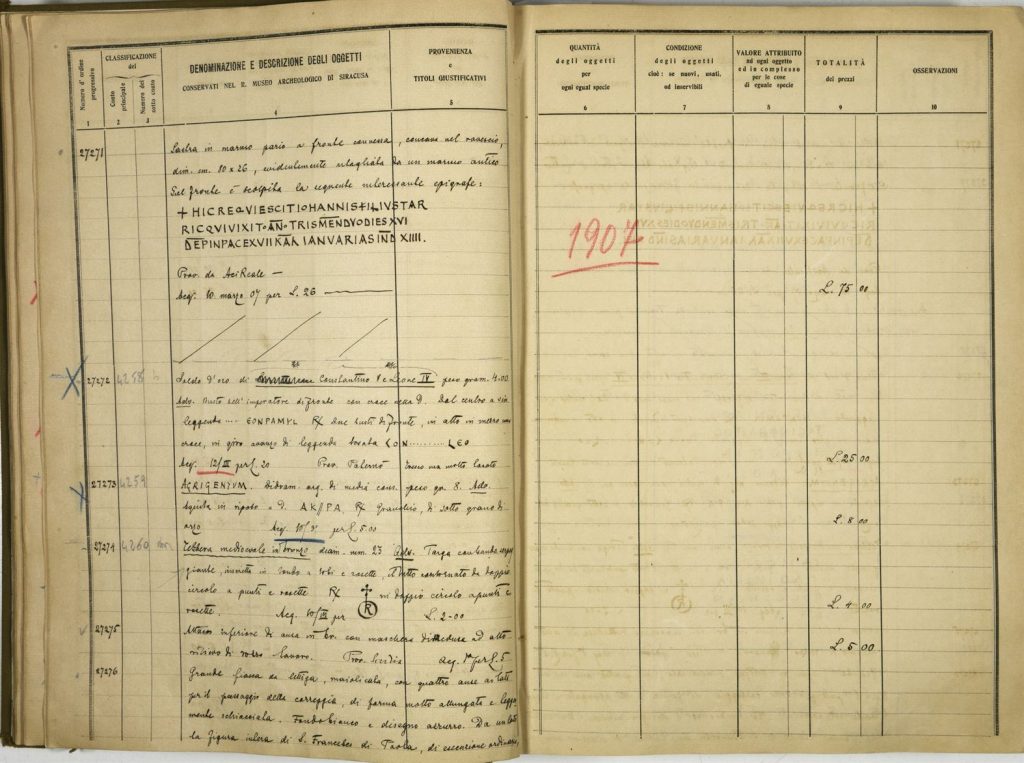 Numero d'ordine progressivo
CLASSIFICAZIONE
del
Conto principale
Numero del sotto conto
DENOMINAZIONE E DESCRIZIONE DEGLI OGGETTI
CONSERVATI NEL R. MUSEO ARCHEOLOGICO DI SIRACUSA
PROVENIENZA
e
TITOLI GIUSTIFICATIVI
1 2 3 4 5
27271
Lastra in marmo pario a fronte convessa, concava nel rovescio,
dim. cm. 80 x 26, evidentemente ritagliata da un marmo antico
Sul fronte è scolpita la seguente interessante epigrafe:
+ HIC REQVIESCIT IOHANNIS FILIVS TAR
RICQVIVIXIT AN TRIS MEN DVO DIES XVI
DEP IN PACE XVII KAL IANVARIAS IND XIIII.
Prov. da AciReale —
Acq. 10 marzo 07 per L. 26
27272 4258
Soldo d'oro di Constantino V e Leone IV peso gram. 4.00
Adv. Busto dell'imperatore di fronte con croce nella D. Dal centro a
leggenda .... EONPAMYL R/ Due busti di fronte, in alto in mezzo una
croce, in giro avanzo di leggenda CON.......... LEO
Acq. 12/III per L. 20 Prov. Paternò
27273 4259
AGRIGENTUM. Didram. arg. di media cons. peso gr. 8. Adv.
Aquila in riposo a D. AK/PA. R/ Granchio, di sotto grano di
orzo Acq. 10/ per L. 5.00
27274 4260
Tessera medioevale in bronzo diam. mm. 23 Adv. Targa
inscritta in tondo a lobi e rosette, il tutto contornato da doppio
circolo a punti e rosette R/ R in doppio circolo a punti e
rosette. Acq. 10/III per L. 2-00
27275
Attacco inferiore di ansa in br. con maschera di Medusa ad alto
rilievo di rozzo lavoro. Prov. acq. per L. 5
27276
Grande fiasca da lettiga, maiolicata, con quattro anse ai lati
per il passaggio della correggia, di forma molto allungata e legger
mente schiacciata. Fondo bianco e disegno azzurro. Da un lato
la figura intera di S. Francesco di Paola, di esecuzione ordinaria,
QUANTITÀ
degli oggetti
per
ogni egual specie
CONDIZIONE
degli oggetti
cioè: se nuovi, usati,
od inservibili
VALORE ATTRIBUITO
ad ogni oggetto
ed in complesso
per le cose
di eguale specie
TOTALITÀ
dei prezzi
OSSERVAZIONI
6 7 8 9 10
1907
L. 75 00
L. 25 00
L. 8 00
L. 4 00
L. 5 00